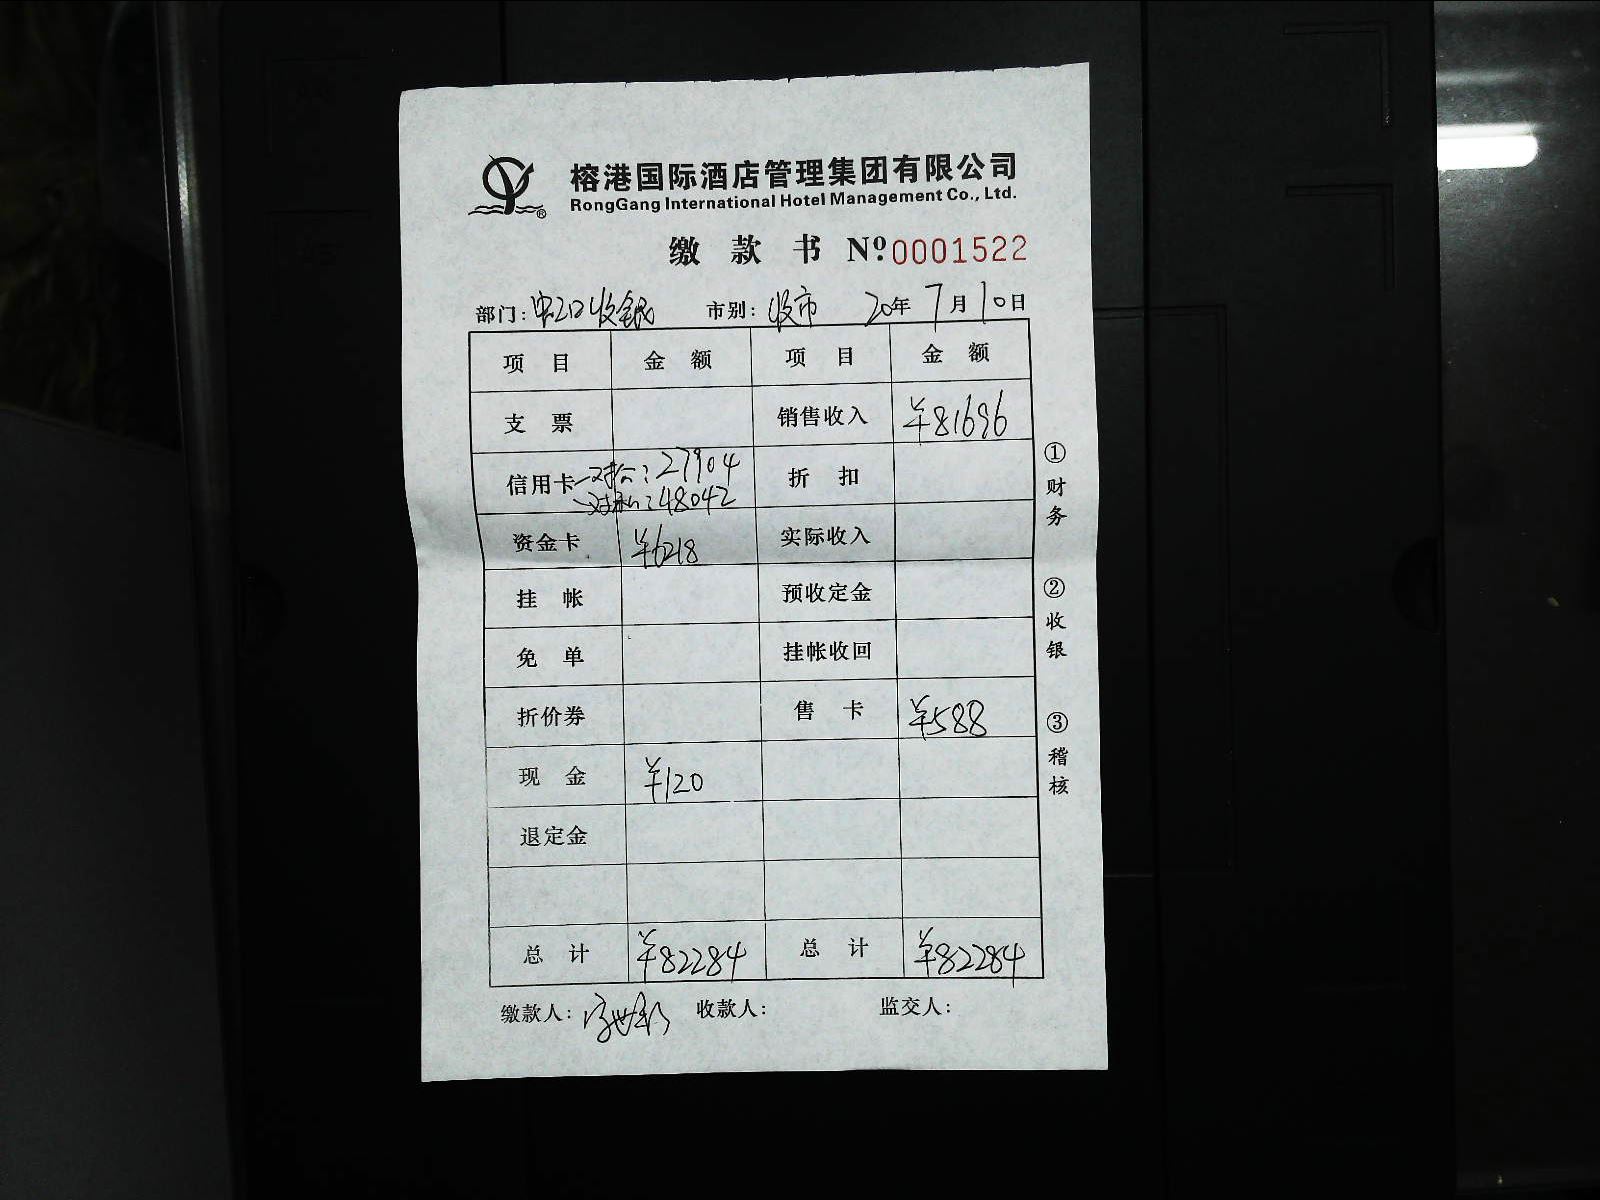 榕港国际酒店管理集团有限公司
RongGang International Hotel Management Co., Ltd.
缴款书 Nº 0001522
部门: 收银 市别: 夜市 20年7月10日
项目 金额 项目 金额
支票 销售收入 ¥81696
信用卡 对公:27904 折扣
对私:48042
资金卡 ¥6218 实际收入
挂帐 预收定金
免单 挂帐收回
折价券 售卡 ¥588
现金 ¥120
退定金
总计 ¥82284 总计 ¥82284
缴款人: 收款人: 监交人:
①财务 ②收银 ③稽核